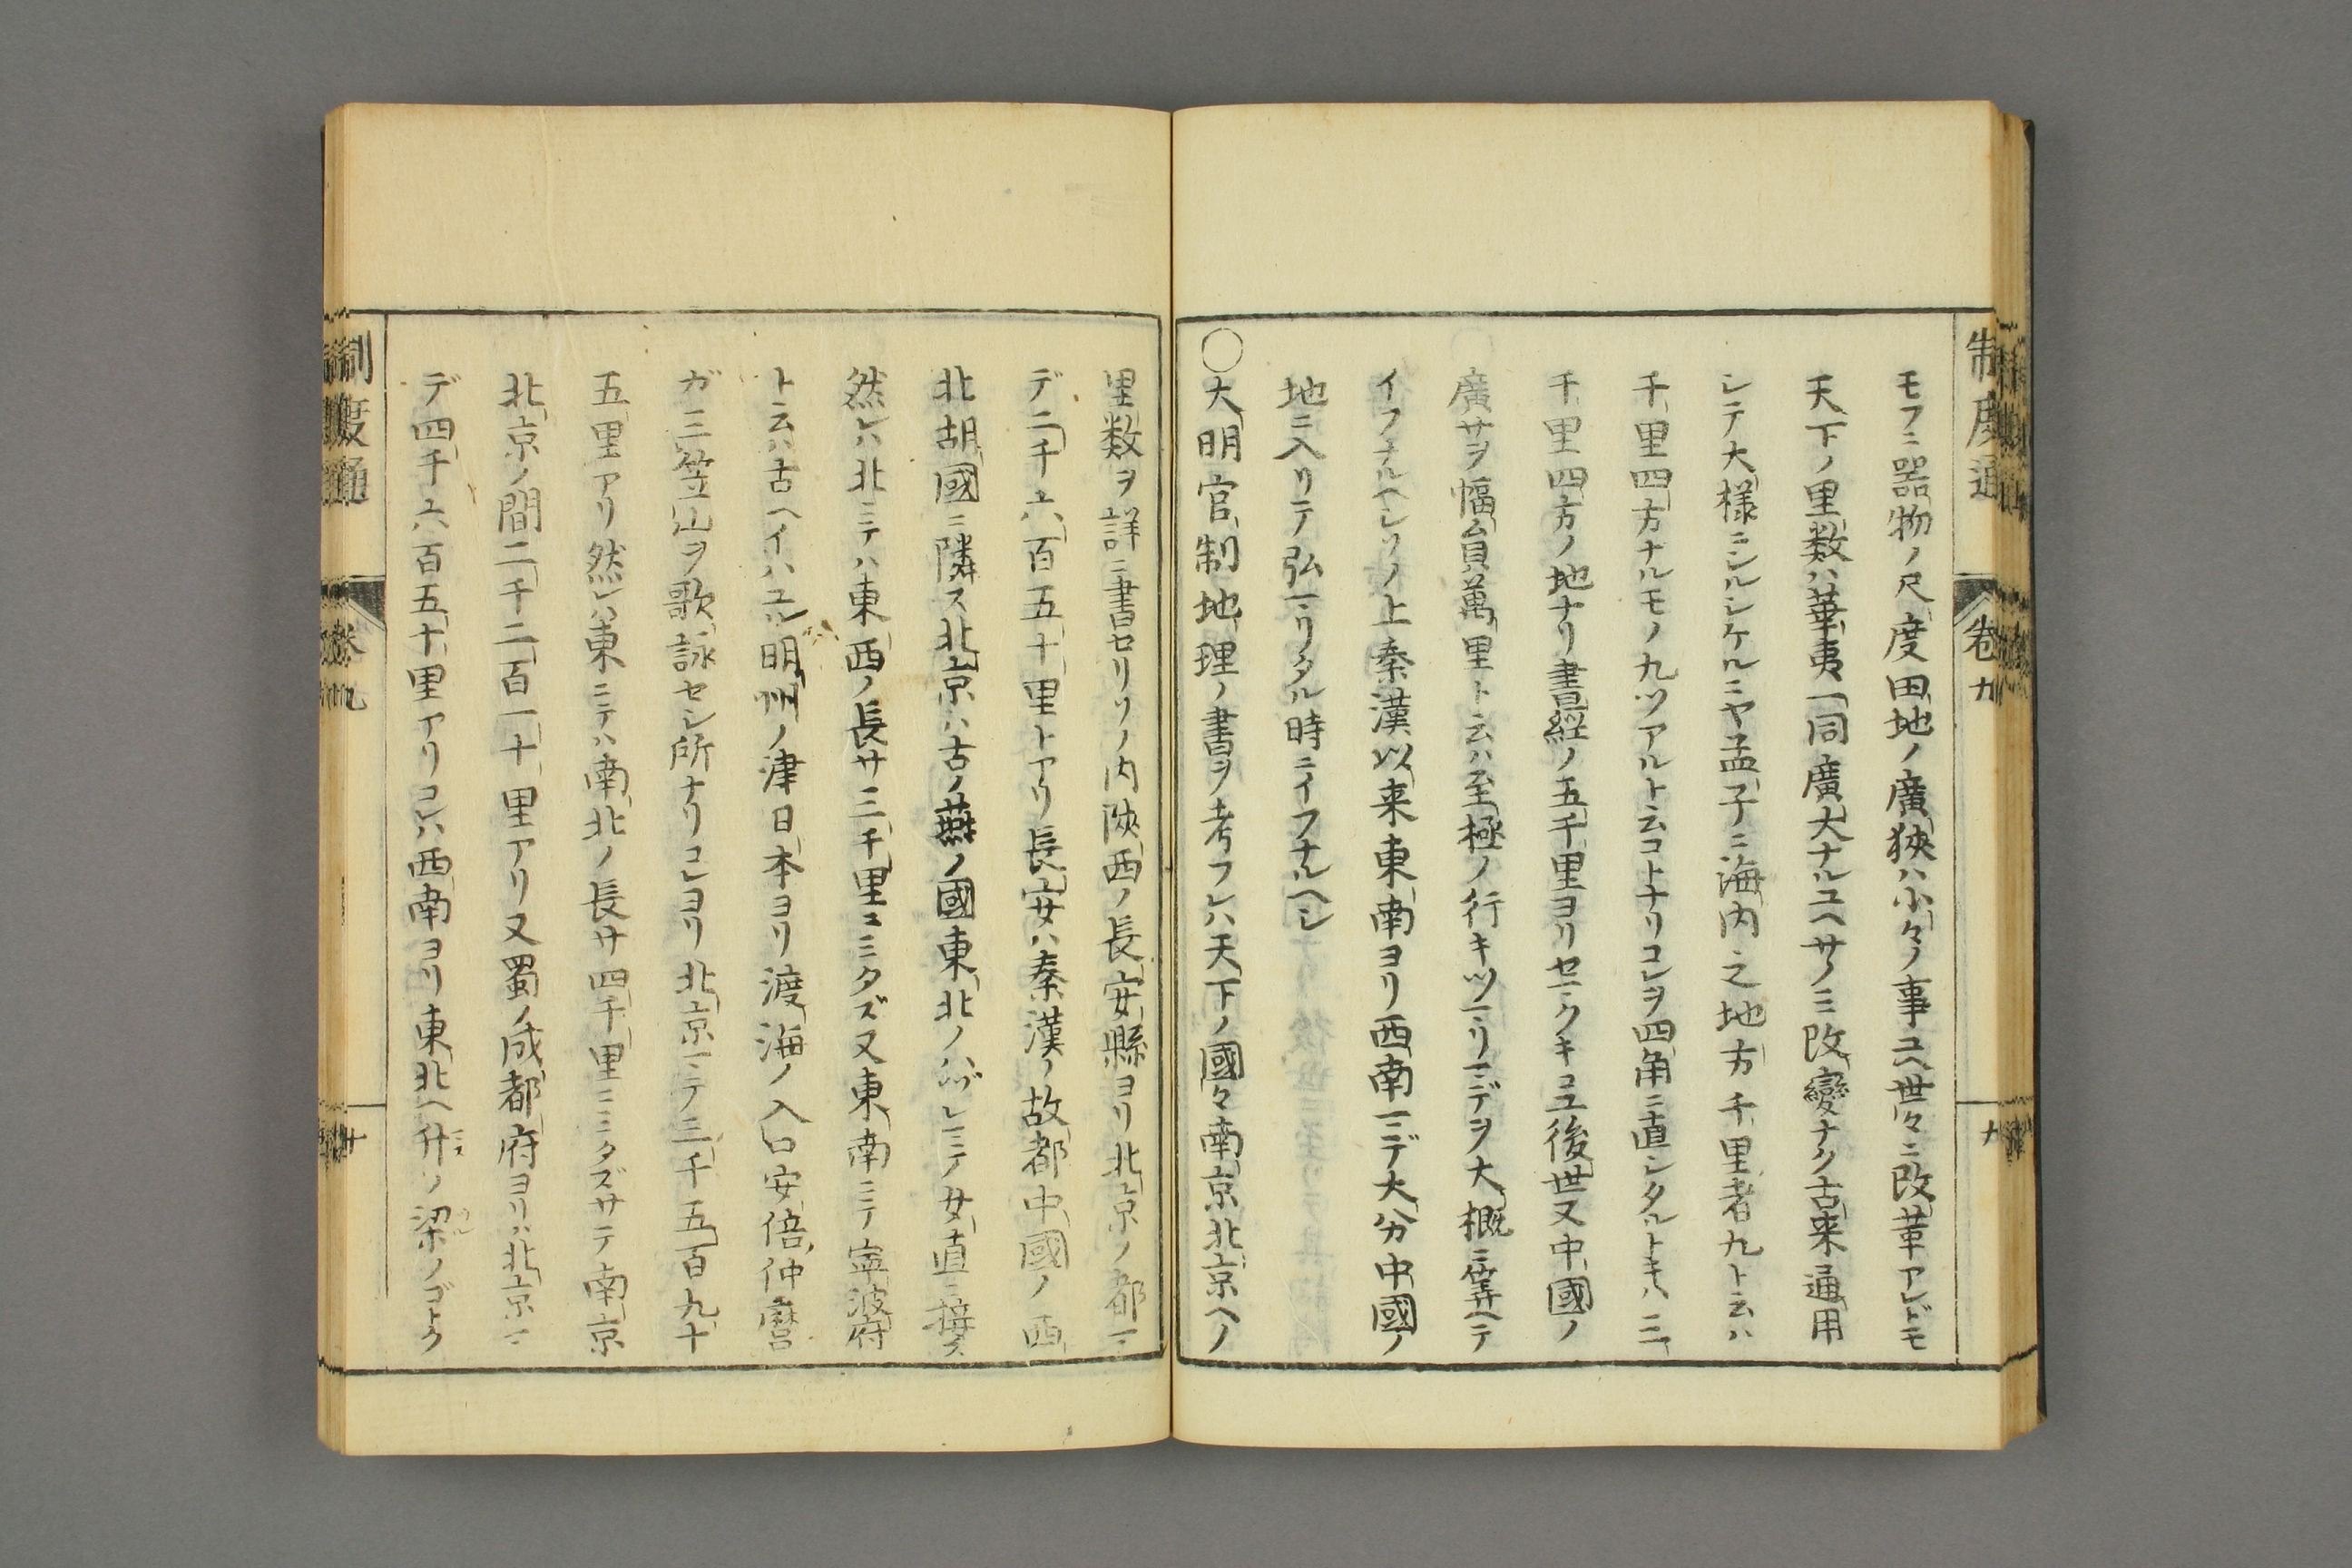 制度通 卷九 九
モフニ器物ノ尺度田地ノ廣狹ハ小々ノ事ユヘ世々ニ改革アレドモ
天下ノ里数ハ華夷一同廣大ナルユヘサノミ改變ナク古来通用
シテ大様ニシルシケルニヤ孟子ニ海内之地方千里者九ト云ハ
千里四方ナルモノ九ツアルト云コトナリコレヲ四角ニ直シタルトキハ三
千里四方ノ地ナリ書経ノ五千里ヨリセマクキコユ後世又中國ノ
廣サヲ幅員萬里ト云ハ至極ノ行キツマリマデヲ大概ニ筭ヘテ
イフナルヘシソノ上秦漢以来東南ヨリ西南マデ大分中國ノ
地ニ入リテ弘マリタル時ニイフナルヘシ
〇大明官制地理ノ書ヲ考フレハ天下ノ國々南京北京ヘノ
里数ヲ詳ニ書セリソノ内陜西ノ長安縣ヨリ北京ノ都マ
デ二千六百五十里トアリ長安ハ秦漢ノ故都中國ノ西
北胡國ニ隣ス北京ハ古ノ燕ノ國東北ノハヅレニテ女直ニ接ス
然レハ北ニテハ東西ノ長サ三千里ニミタズ又東南ニテ寧波府
ト云ハ古ヘイハユル明州ノ津日本ヨリ渡海ノ入口安倍仲麿
ガ三笠山ヲ歌詠セシ所ナリコレヨリ北京マテ三千五百九十
五里アリ然レハ東ニテハ南北ノ長サ四千里ニミタズサテ南京
北京ノ間二千二百一十里アリ又蜀ノ成都府ヨリハ北京マ
デ四千六百五十里アリコレハ西南ヨリ東北ヘ升ソ梁ノゴトク
制度通 卷九 廿